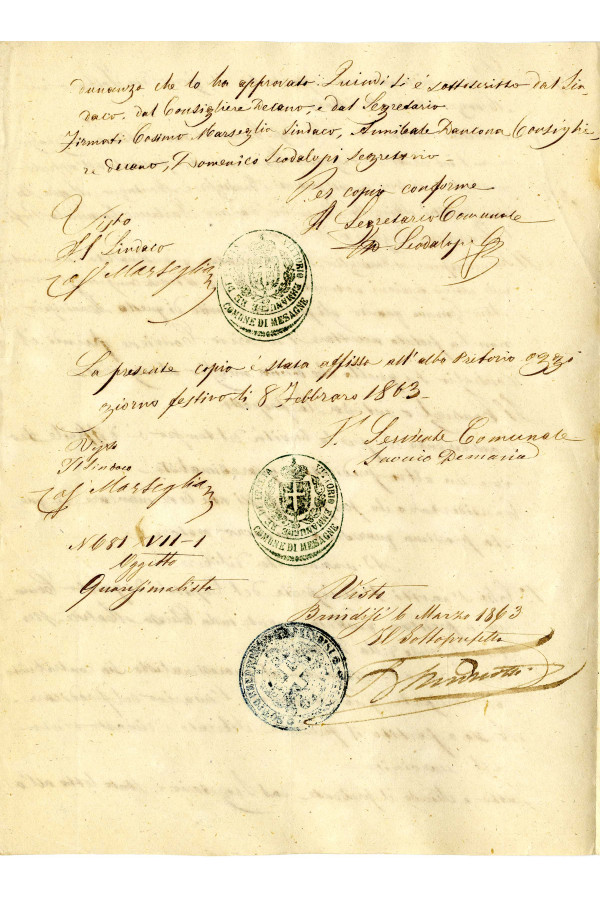 dunanza che lo ha approvato. Quindi si è sottoscritto dal Sin-
daco, dal Consigliere Decano, e dal Segretario
Firmati Cosimo Marseglia Sindaco, Annibale Dancona Consiglie-
re decano, Domenico Scodalupi segretario
Per copia conforme
Il Segretario Comunale
Scodalupi
Visto
Il Sindaco
Marseglia
VITTORIO EMANUELE RE DI
COMUNE DI MESAGNE
La presente copia è stata affissa all'albo Pretorio oggi
giorno festivo li 8 Febbraro 1863
Il Serviente Comunale
Demaria
Visto
Il Sindaco
Marseglia
VITTORIO EMANUELE RE DI ITALIA
COMUNE DI MESAGNE
N 681-VII-1
Oggetto
Quaresimalista
Visto
Brindisi 6 Marzo 1863
Il Sottoprefetto